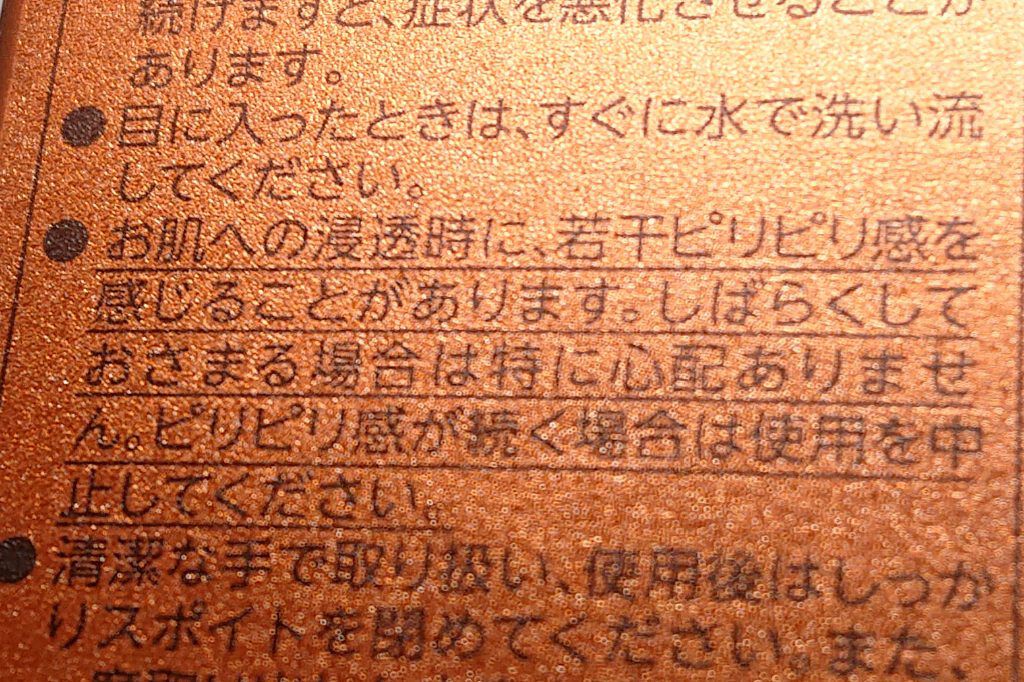 続けますと、症状を悪化させることが
あります。
●目に入ったときは、すぐに水で洗い流
してください。
●お肌への浸透時に、若干ピリピリ感を
感じることがあります。しばらくして
おさまる場合は特に心配ありませ
ん。ピリピリ感が続く場合は使用を中
止してください。
●清潔な手で取り扱い、使用後はしっか
りスポイトを閉めてください。また、